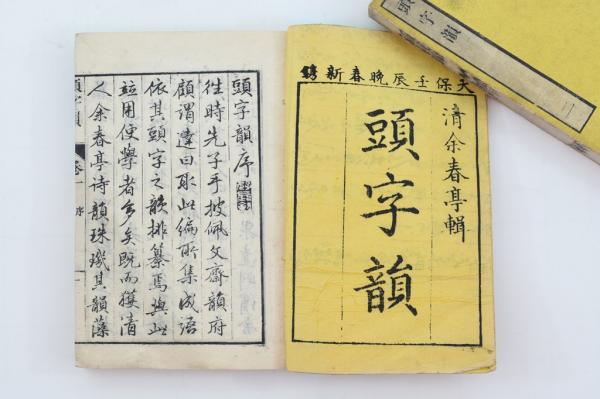 天保壬辰晩春新鐫
清余春亭輯
頭字韻
頭字韻序
往時先子手披佩文齋韻府
顧謂達曰取此編所集成語
依其頭字之韻排纂焉與此
竝用便學者多矣既而獲清
人余春亭詩韻珠璣其韻藻
頭字韻 卷一 序
頭字韻